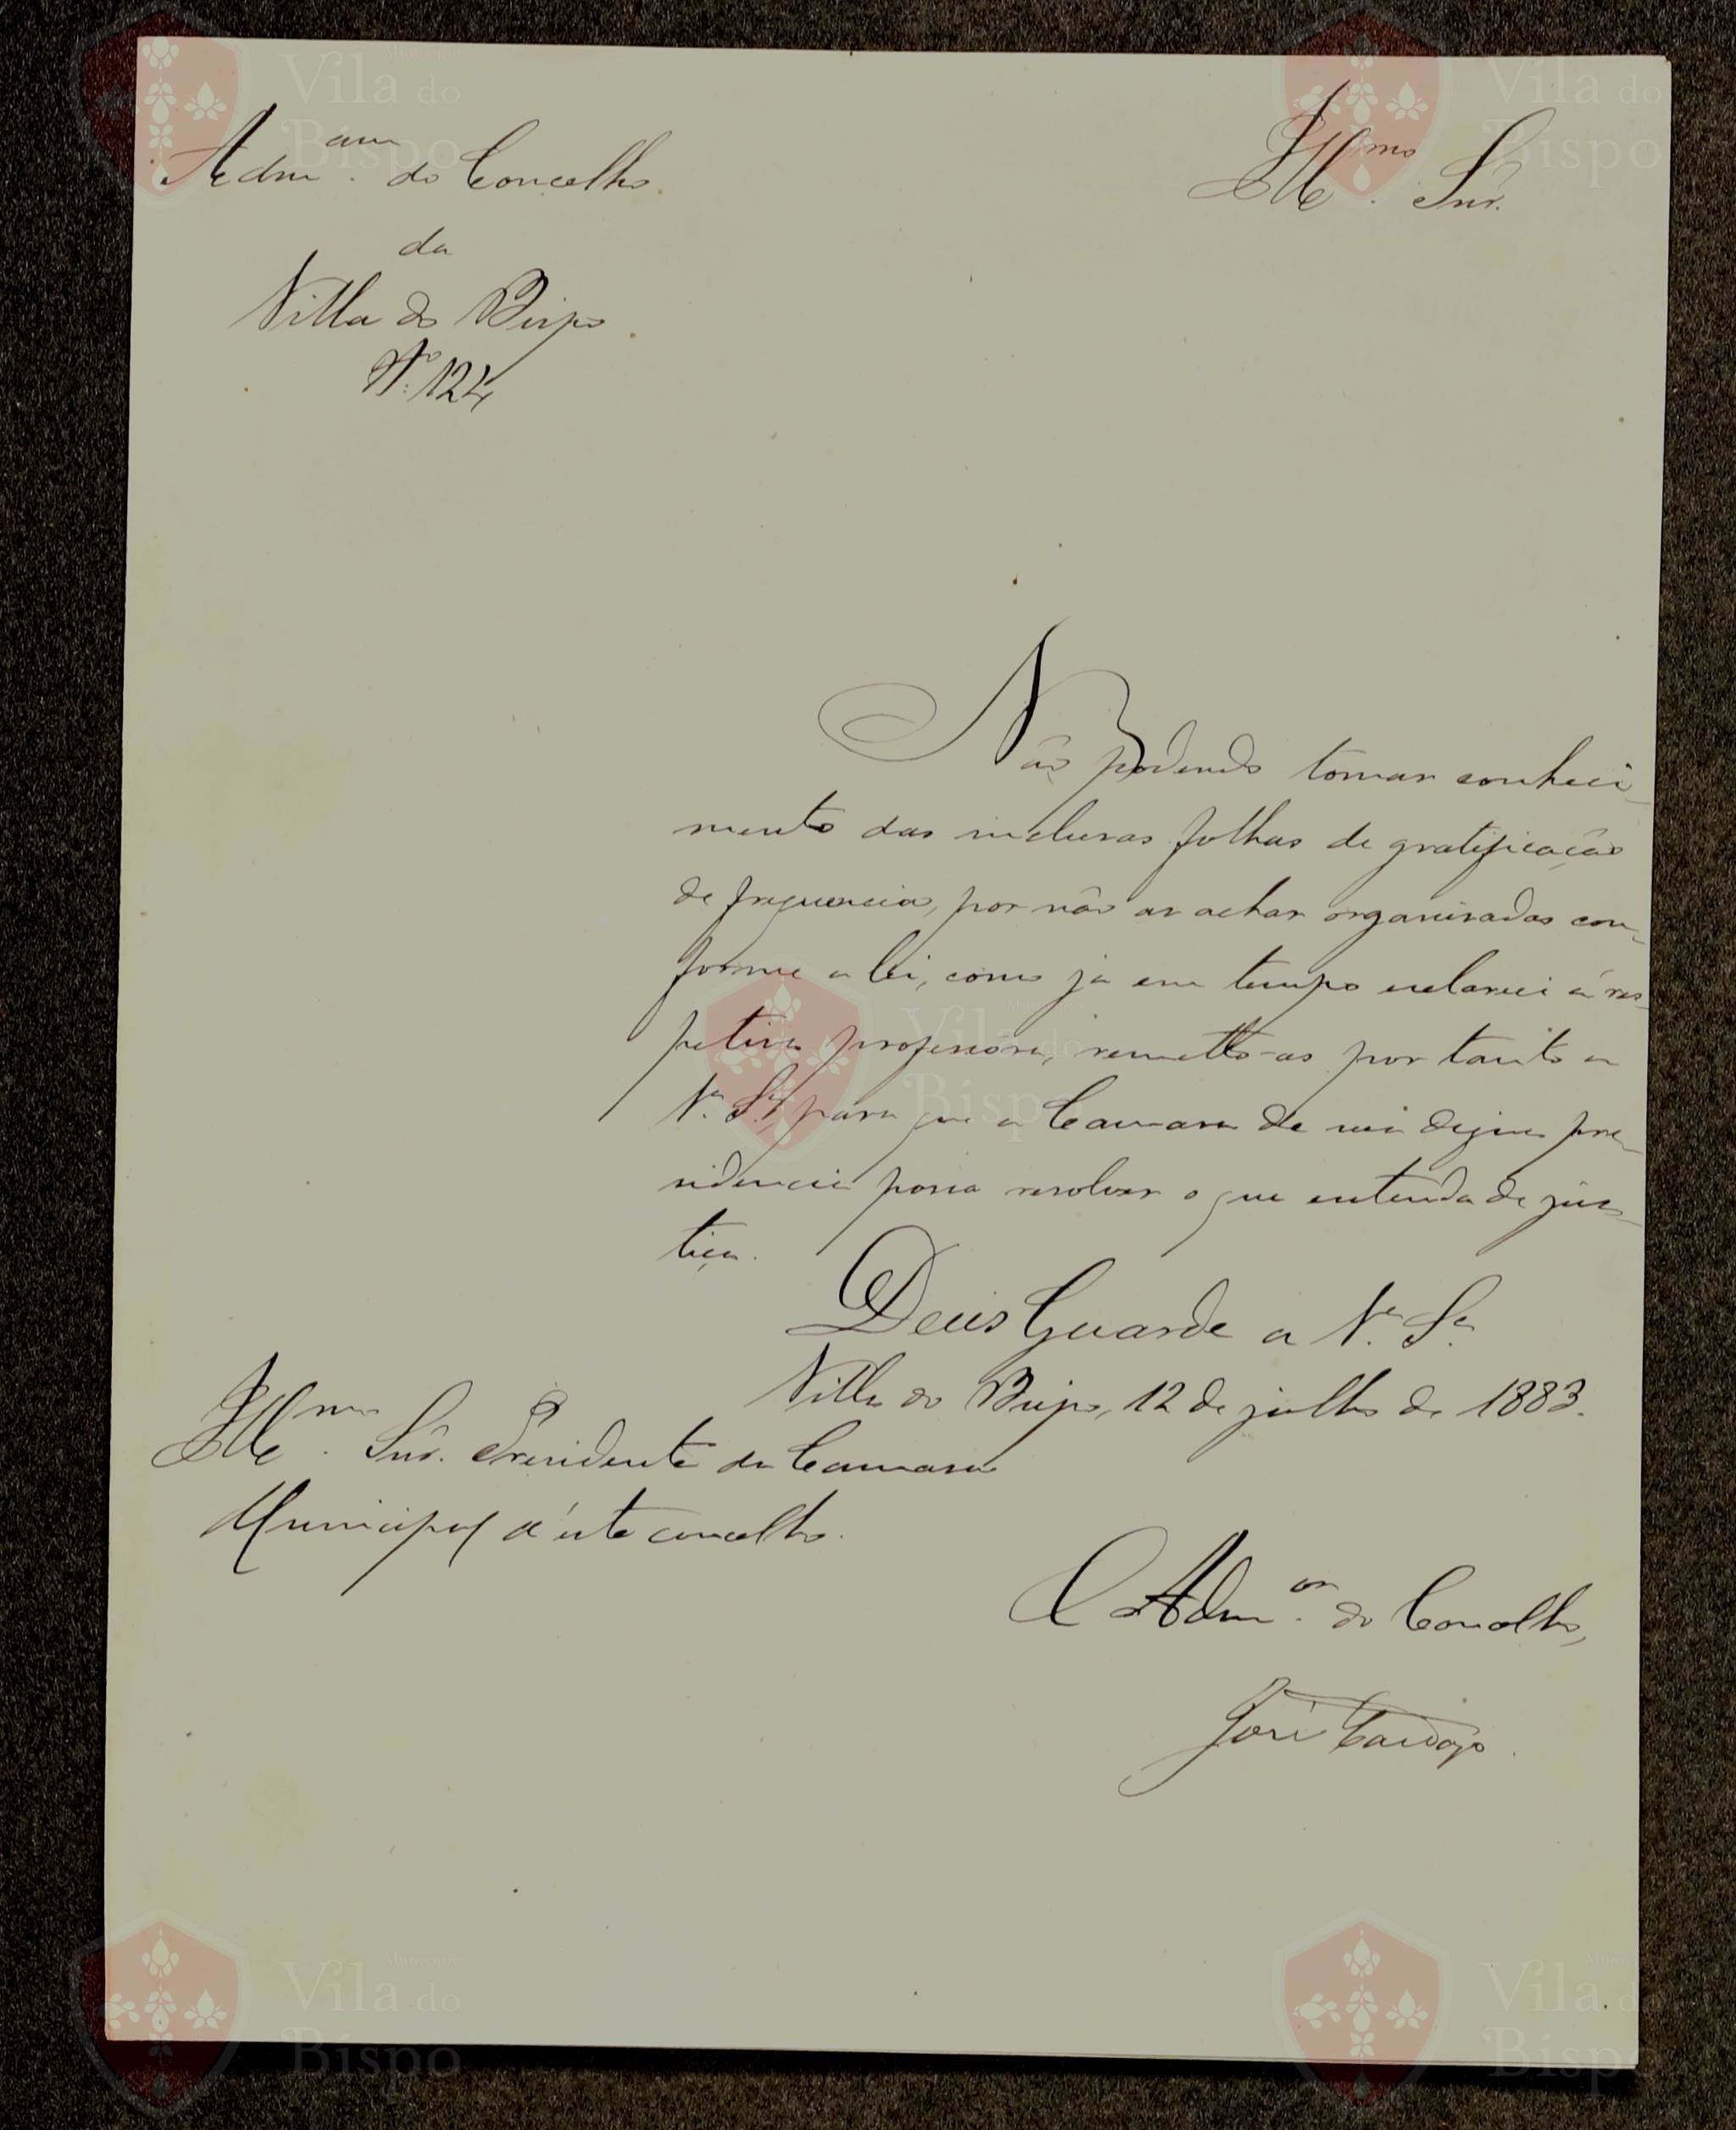 Adm.am do Concelho
da
Villa do Bispo.
Nº 124
Illmo. Snr.
Não podendo tomar conheci-
mento das inclusas folhas de gratificação
de frequencia, por não as achar organisadas con-
forme a lei, como já em tempo esclareci á res-
petiva professora, remetto-as por tanto a
V.ª S.ª, para que a Camara de sua digna pre-
sidencia possa resolver o que entenda de jus-
tiça.
Deus Guarde a V.ª S.ª
Villa do Bispo, 12 de julho de 1883.
Illmo. Snr. Presidente da Camara
Municipal d'este concelho.
O Adm.or do Concelho,
José Cardoso.
Vila do
Bispo
Vila do
Bispo
Vila do
Bispo
Vila do
Bispo
Vila do
Bispo